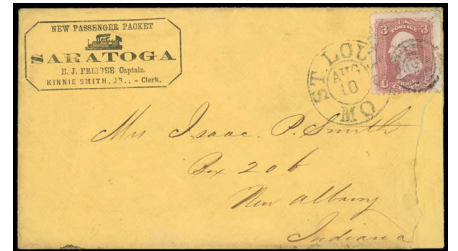 NEW PASSENGER PACKET
SARATOGA
E. J. FRISBEE Captain.
KINNIE SMITH, JR., - Clerk.
ST LOUIS
AUG
10
MO
3 3
Mrs Isaac. P. Smith
Box 206
New Albany
Indiana